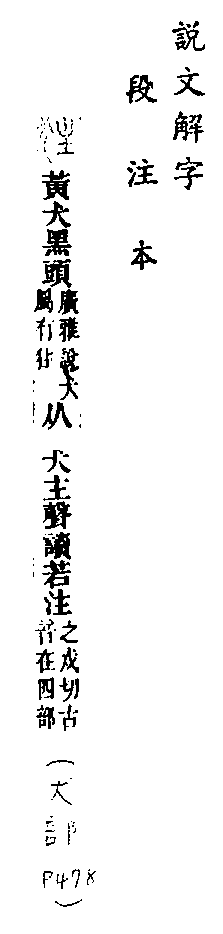 說文解字
段注本
黃犬黑頭廣雅說犬屬有狌从
犬主聲讀若注之戍切古音在四部
(犬部P478)